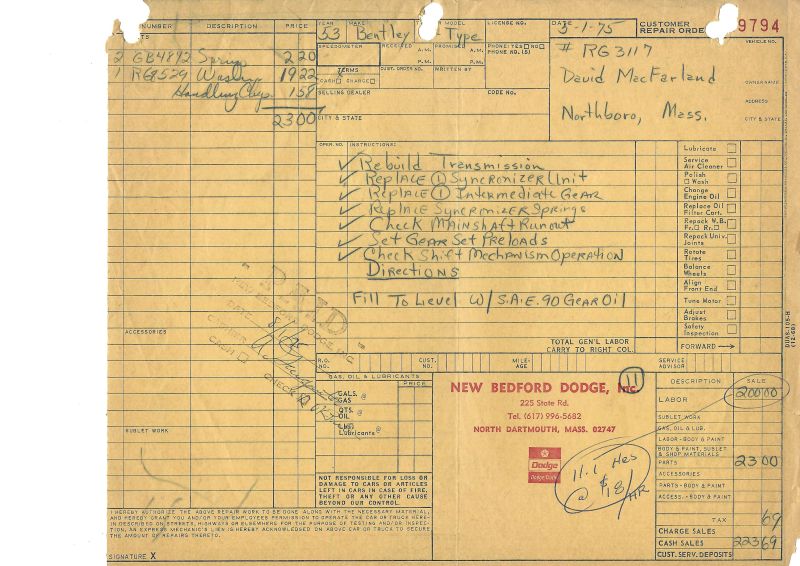 NUMBER DESCRIPTION PRICE
2 GB4892 Spring 2 20
1 RG9529 19 22
Handling Chg. 1 58
23 00
ACCESSORIES
SUBLET WORK
YEAR MAKE MODEL LICENSE NO. DATE
53 Bentley Type 5-1-75
CUSTOMER REPAIR ORDER 9794
SPEEDOMETER RECEIVED A.M. P.M. PROMISED A.M. P.M. PHONE: YES NO
PHONE NO. (S)
VEHICLE NO.
# RG3117
TERMS CUST. ORDER NO. WRITTEN BY
CASH X CHARGE
David MacFarland
OWNER NAME
SELLING DEALER CODE NO.
ADDRESS
CITY & STATE
Northboro, Mass.
CITY & STATE
OPER. NO. INSTRUCTIONS:
✓ Rebuild Transmission
✓ Replace ① Syncronizer Unit
✓ Replace ① Intermediate Gear
✓ Replace Syncronizer Springs
✓ Check Mainshaft Runout
✓ Set Gear Set Preloads
✓ Check Shift Mechanism Operation
Directions
Fill To Level W/ S.A.E. 90 Gear Oil
Lubricate
Service Air Cleaner
Polish
Wash
Change Engine Oil
Replace Oil Filter Cart.
Repack W.B.
Fr. Rr.
Repack Univ. Joints
Rotate Tires
Balance Wheels
Align Front End
Tune Motor
Adjust Brakes
Safety Inspection
FORWARD
DUAS-105-H
(12-69)
PAID
NEW BEDFORD DODGE INC.
DATE
CASH CHECK
TOTAL GEN'L LABOR
CARRY TO RIGHT COL.
R.O. NO. CUST. NO. MILE-AGE SERVICE ADVISOR
GAS, OIL & LUBRICANTS PRICE
GALS. GAS @
QTS. OIL @
Lubricants @
NOT RESPONSIBLE FOR LOSS OR
DAMAGE TO CARS OR ARTICLES
LEFT IN CARS IN CASE OF FIRE,
THEFT OR ANY OTHER CAUSE
BEYOND OUR CONTROL.
NEW BEDFORD DODGE, Inc.
11
225 State Rd.
Tel. (617) 996-5682
NORTH DARTMOUTH, MASS. 02747
Dodge
Dodge Trucks
11.1 Hrs
@ $18/HR
DESCRIPTION SALE
LABOR 200 00
SUBLET WORK
GAS, OIL & LUB.
LABOR - BODY & PAINT
BODY & PAINT, SUBLET
& SHOP MATERIALS
PARTS 23 00
ACCESSORIES
PARTS - BODY & PAINT
ACCESS. - BODY & PAINT
TAX 69
CHARGE SALES
CASH SALES 223 69
CUST. SERV. DEPOSITS
I HEREBY AUTHORIZE THE ABOVE REPAIR WORK TO BE DONE ALONG WITH THE NECESSARY MATERIAL,
AND HEREBY GRANT YOU AND/OR YOUR EMPLOYEES PERMISSION TO OPERATE THE CAR OR TRUCK HERE-
IN DESCRIBED ON STREETS, HIGHWAYS OR ELSEWHERE FOR THE PURPOSE OF TESTING AND/OR INSPEC-
TION, AN EXPRESS MECHANIC'S LIEN IS HEREBY ACKNOWLEDGED ON ABOVE CAR OR TRUCK TO SECURE
THE AMOUNT OF REPAIRS THERETO.
SIGNATURE X